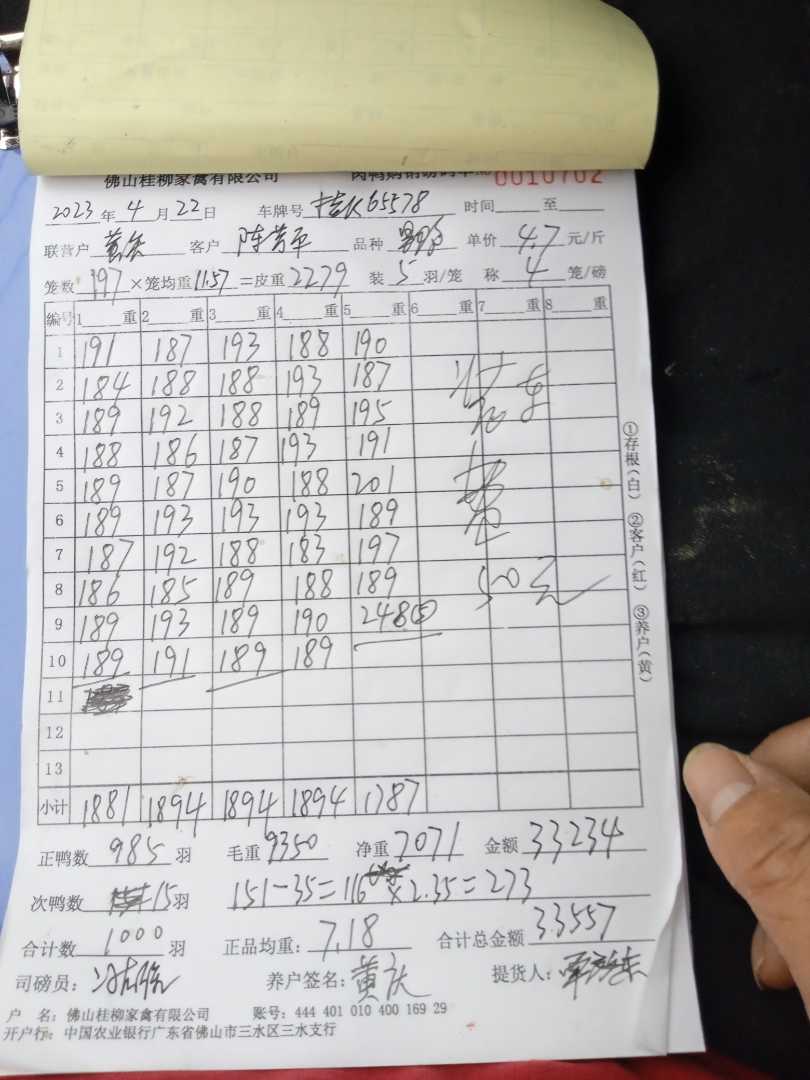 佛山桂柳家禽有限公司 0010702
2023年4月22日 车牌号 65578 时间 至
联营户 黄庆 客户 品种 单价 4.7 元/斤
笼数 197 ×笼均重 11.57 =皮重 2279 装 5 羽/笼 称 4 笼/磅
编号 1 重 2 重 3 重 4 重 5 重 6 重 7 重 8 重
1 191 187 193 188 190
2 184 188 188 193 187
3 189 192 188 189 195
4 188 186 187 193 191
5 189 187 190 188 201
6 189 193 193 193 189
7 187 192 188 183 197
8 186 185 189 188 189
9 189 193 189 190 248⑤
10 189 191 189 189
11
12
13
小计 1881 1894 1894 1894 1787
50元
正鸭数 985 羽 毛重 9350 净重 7071 金额 33234
次鸭数 15羽 151-35=116×2.35=273
合计数 1000 羽 正品均重: 7.18 合计总金额 33557
司磅员: 养户签名: 黄庆 提货人:
户 名: 佛山桂柳家禽有限公司 账号: 444 401 010 400 169 29
开户行: 中国农业银行广东省佛山市三水区三水支行
①存根(白) ②客户(红) ③养户(黄)